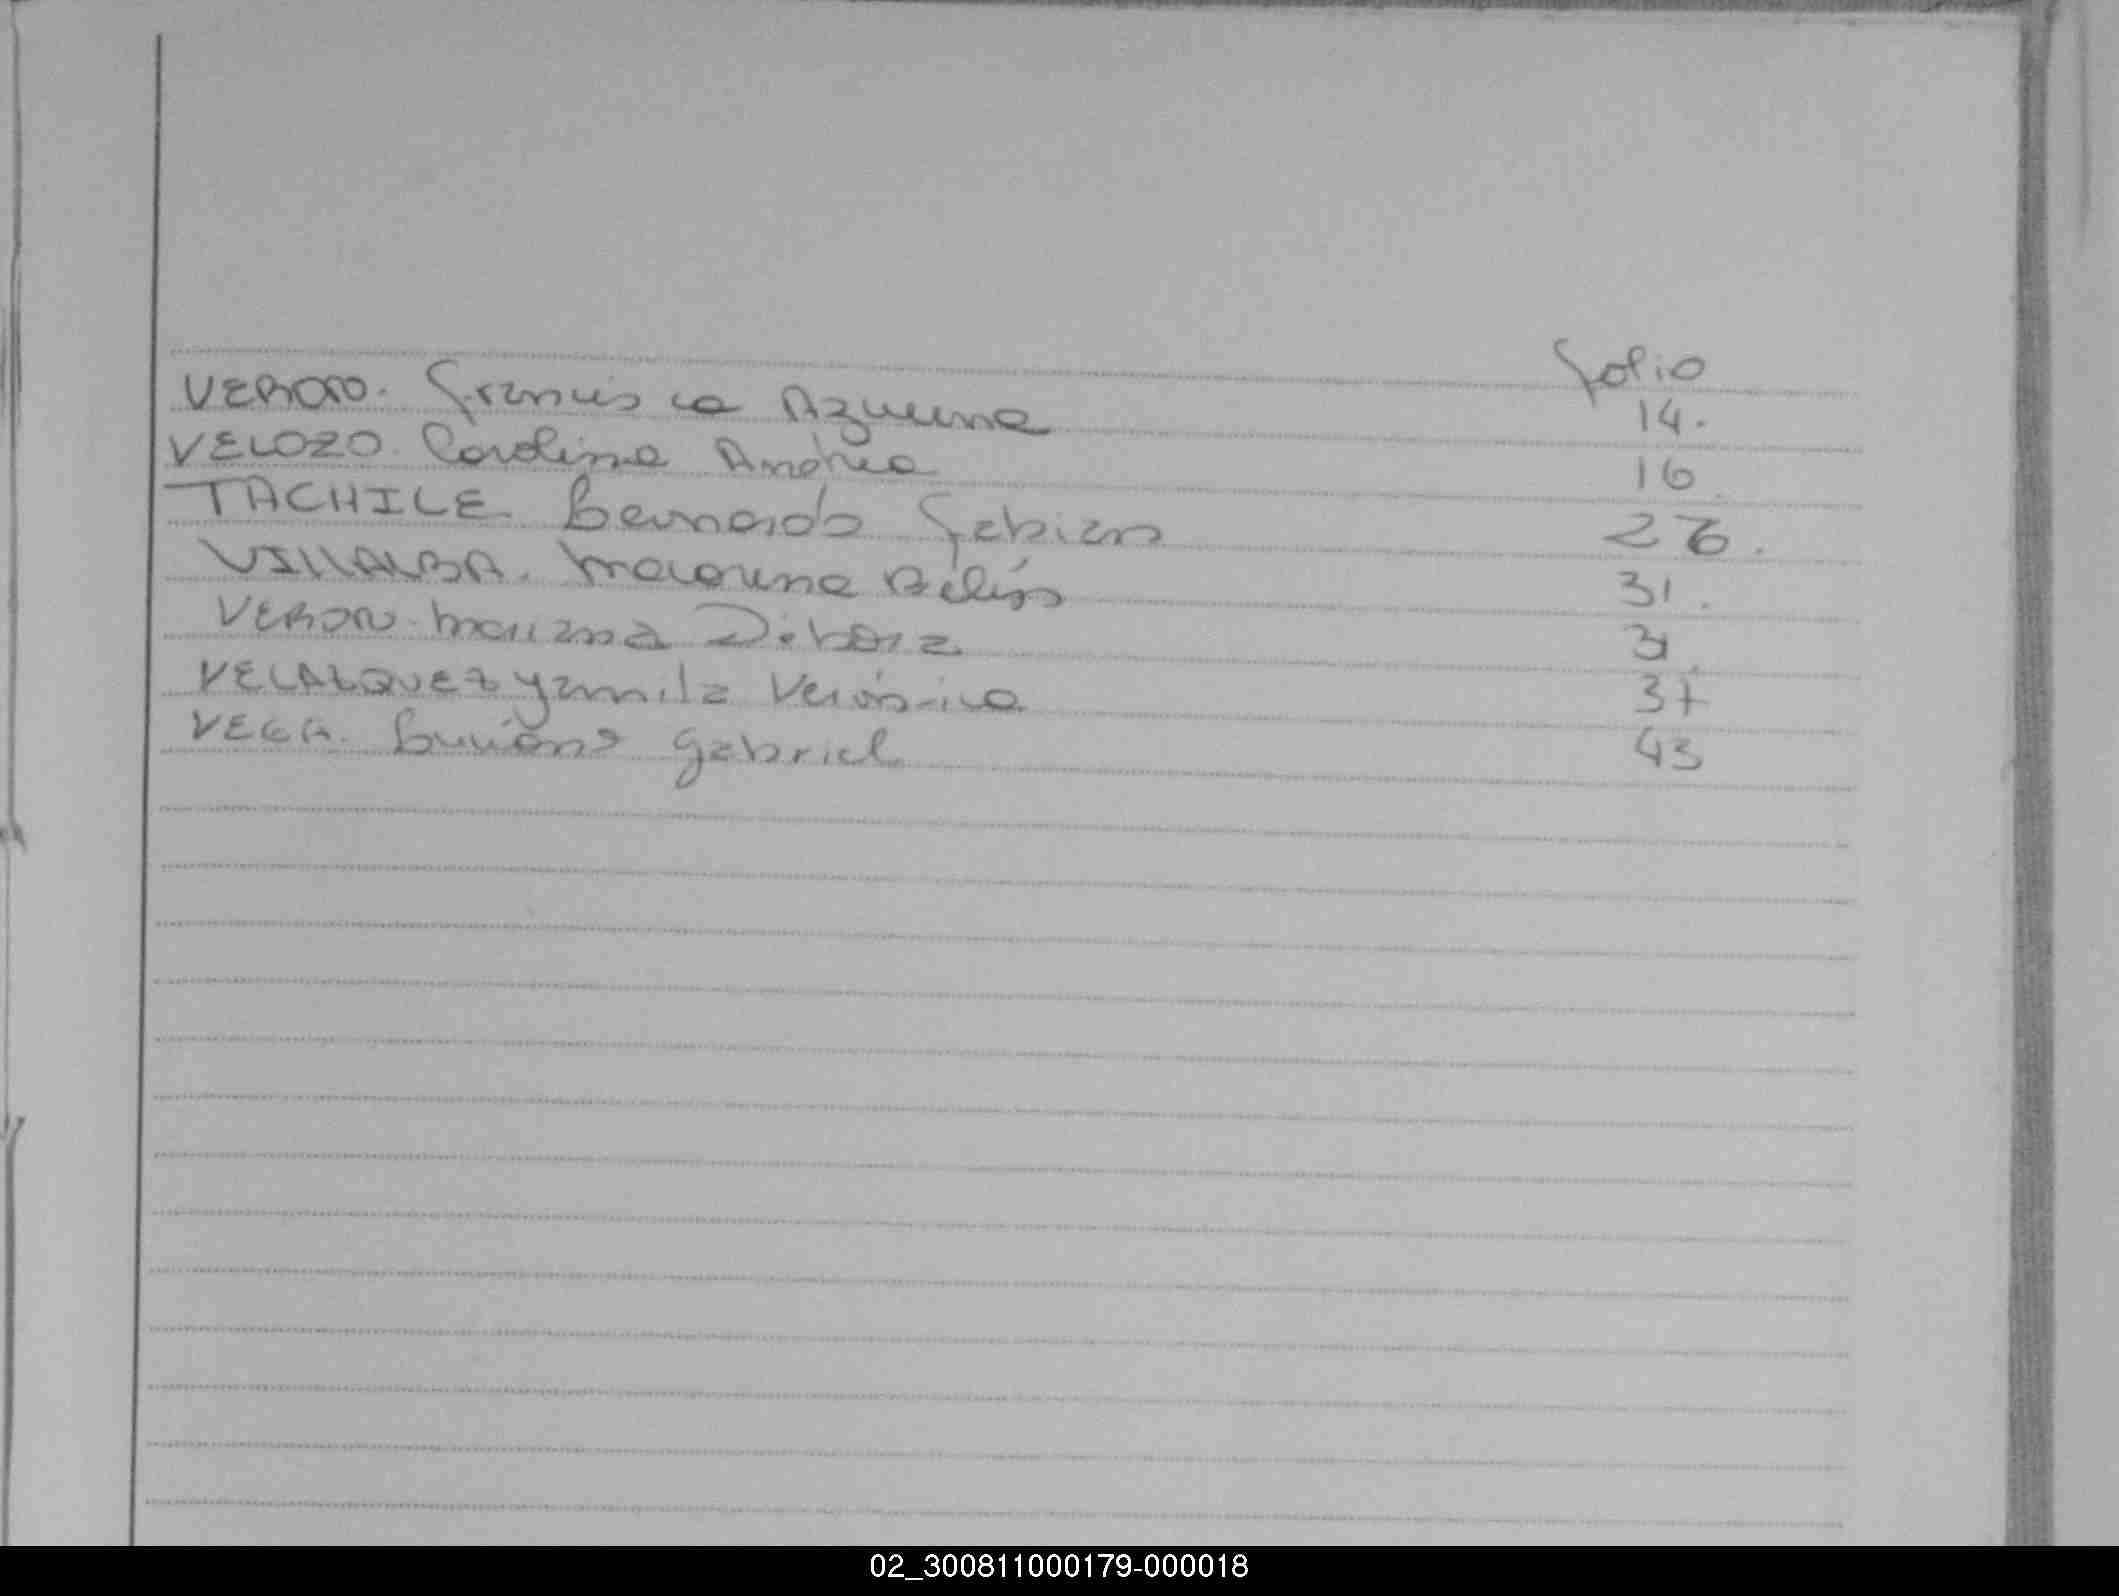 Folio
VERON. Francisca Azucena 14.
VELOZO. Carolina Andrea 16.
TACHILE. Bernardo Fabian 26.
VILLALBA. Macarena Belén 31.
VERON. Mariana Debora 31.
VELAZQUEZ Yamila Verónica 37
VEGA. Gabriel 43
02_300811000179-000018